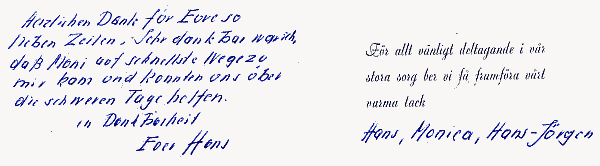 Herzlichen Dank för Eure so
lieben Zeilen, Sehr dankbar war ich,
daß Moni auf schnellste Wege zu
mir kam und konnten uns über
die schweren Tage helfen.
in Dankbarheit
Euer Hans
För allt vänligt deltagande i vår
stora sorg ber vi få framföra vårt
varma tack
Hans, Monica, Hans-Jörgen